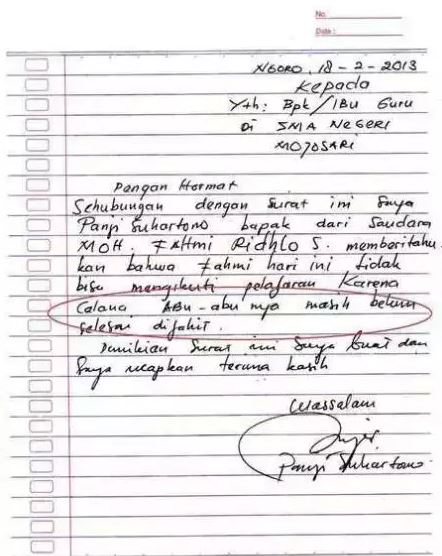 No.
Date :
NGORO, 18 - 2 - 2013
Kepada
Yth : Bpk / IBu Guru
Di SMA NEGERI
MOJOSARI
Dengan Hormat
Sehubungan dengan Surat ini Saya
Panji Suhartono bapak dari Saudara
MOH. FAHmi Ridhlo S. memberitahu-
kan bahwa Fahmi hari ini tidak
bisa mengikuti pelajaran Karena
Celana ABu-abu nya masih belum
selesai dijahit.
Demikian Surat ini Saya buat dan
Saya ucapkan terima kasih
Wassalam
Panji Suhartono